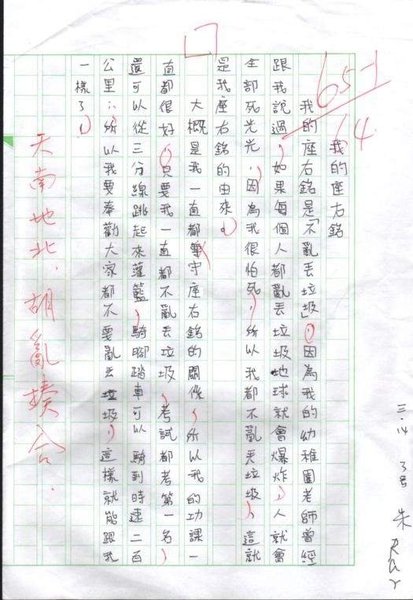 三.14 3号 朱
65-1
64
我的座右銘
我的座右銘是「不亂丟垃圾」，因為我的幼稚園老師曾經
跟我說過，如果每個人都亂丟垃圾地球就會爆炸，人就會
全部死光光，因為我很怕死，所以我都不亂丟垃圾，這就
是我座右銘的由來。
大概是我一直都遵守座右銘的關係，所以我的功課一
直都很好，只要我一直都不亂丟垃圾，考試都考第一名，
還可以從三分線跳起來灌籃，騎腳踏車可以騎到時速二百
公里，所以我要奉勸大家都不要亂丟垃圾，這樣就能跟我
一樣了。
天南地北．胡亂揍合．